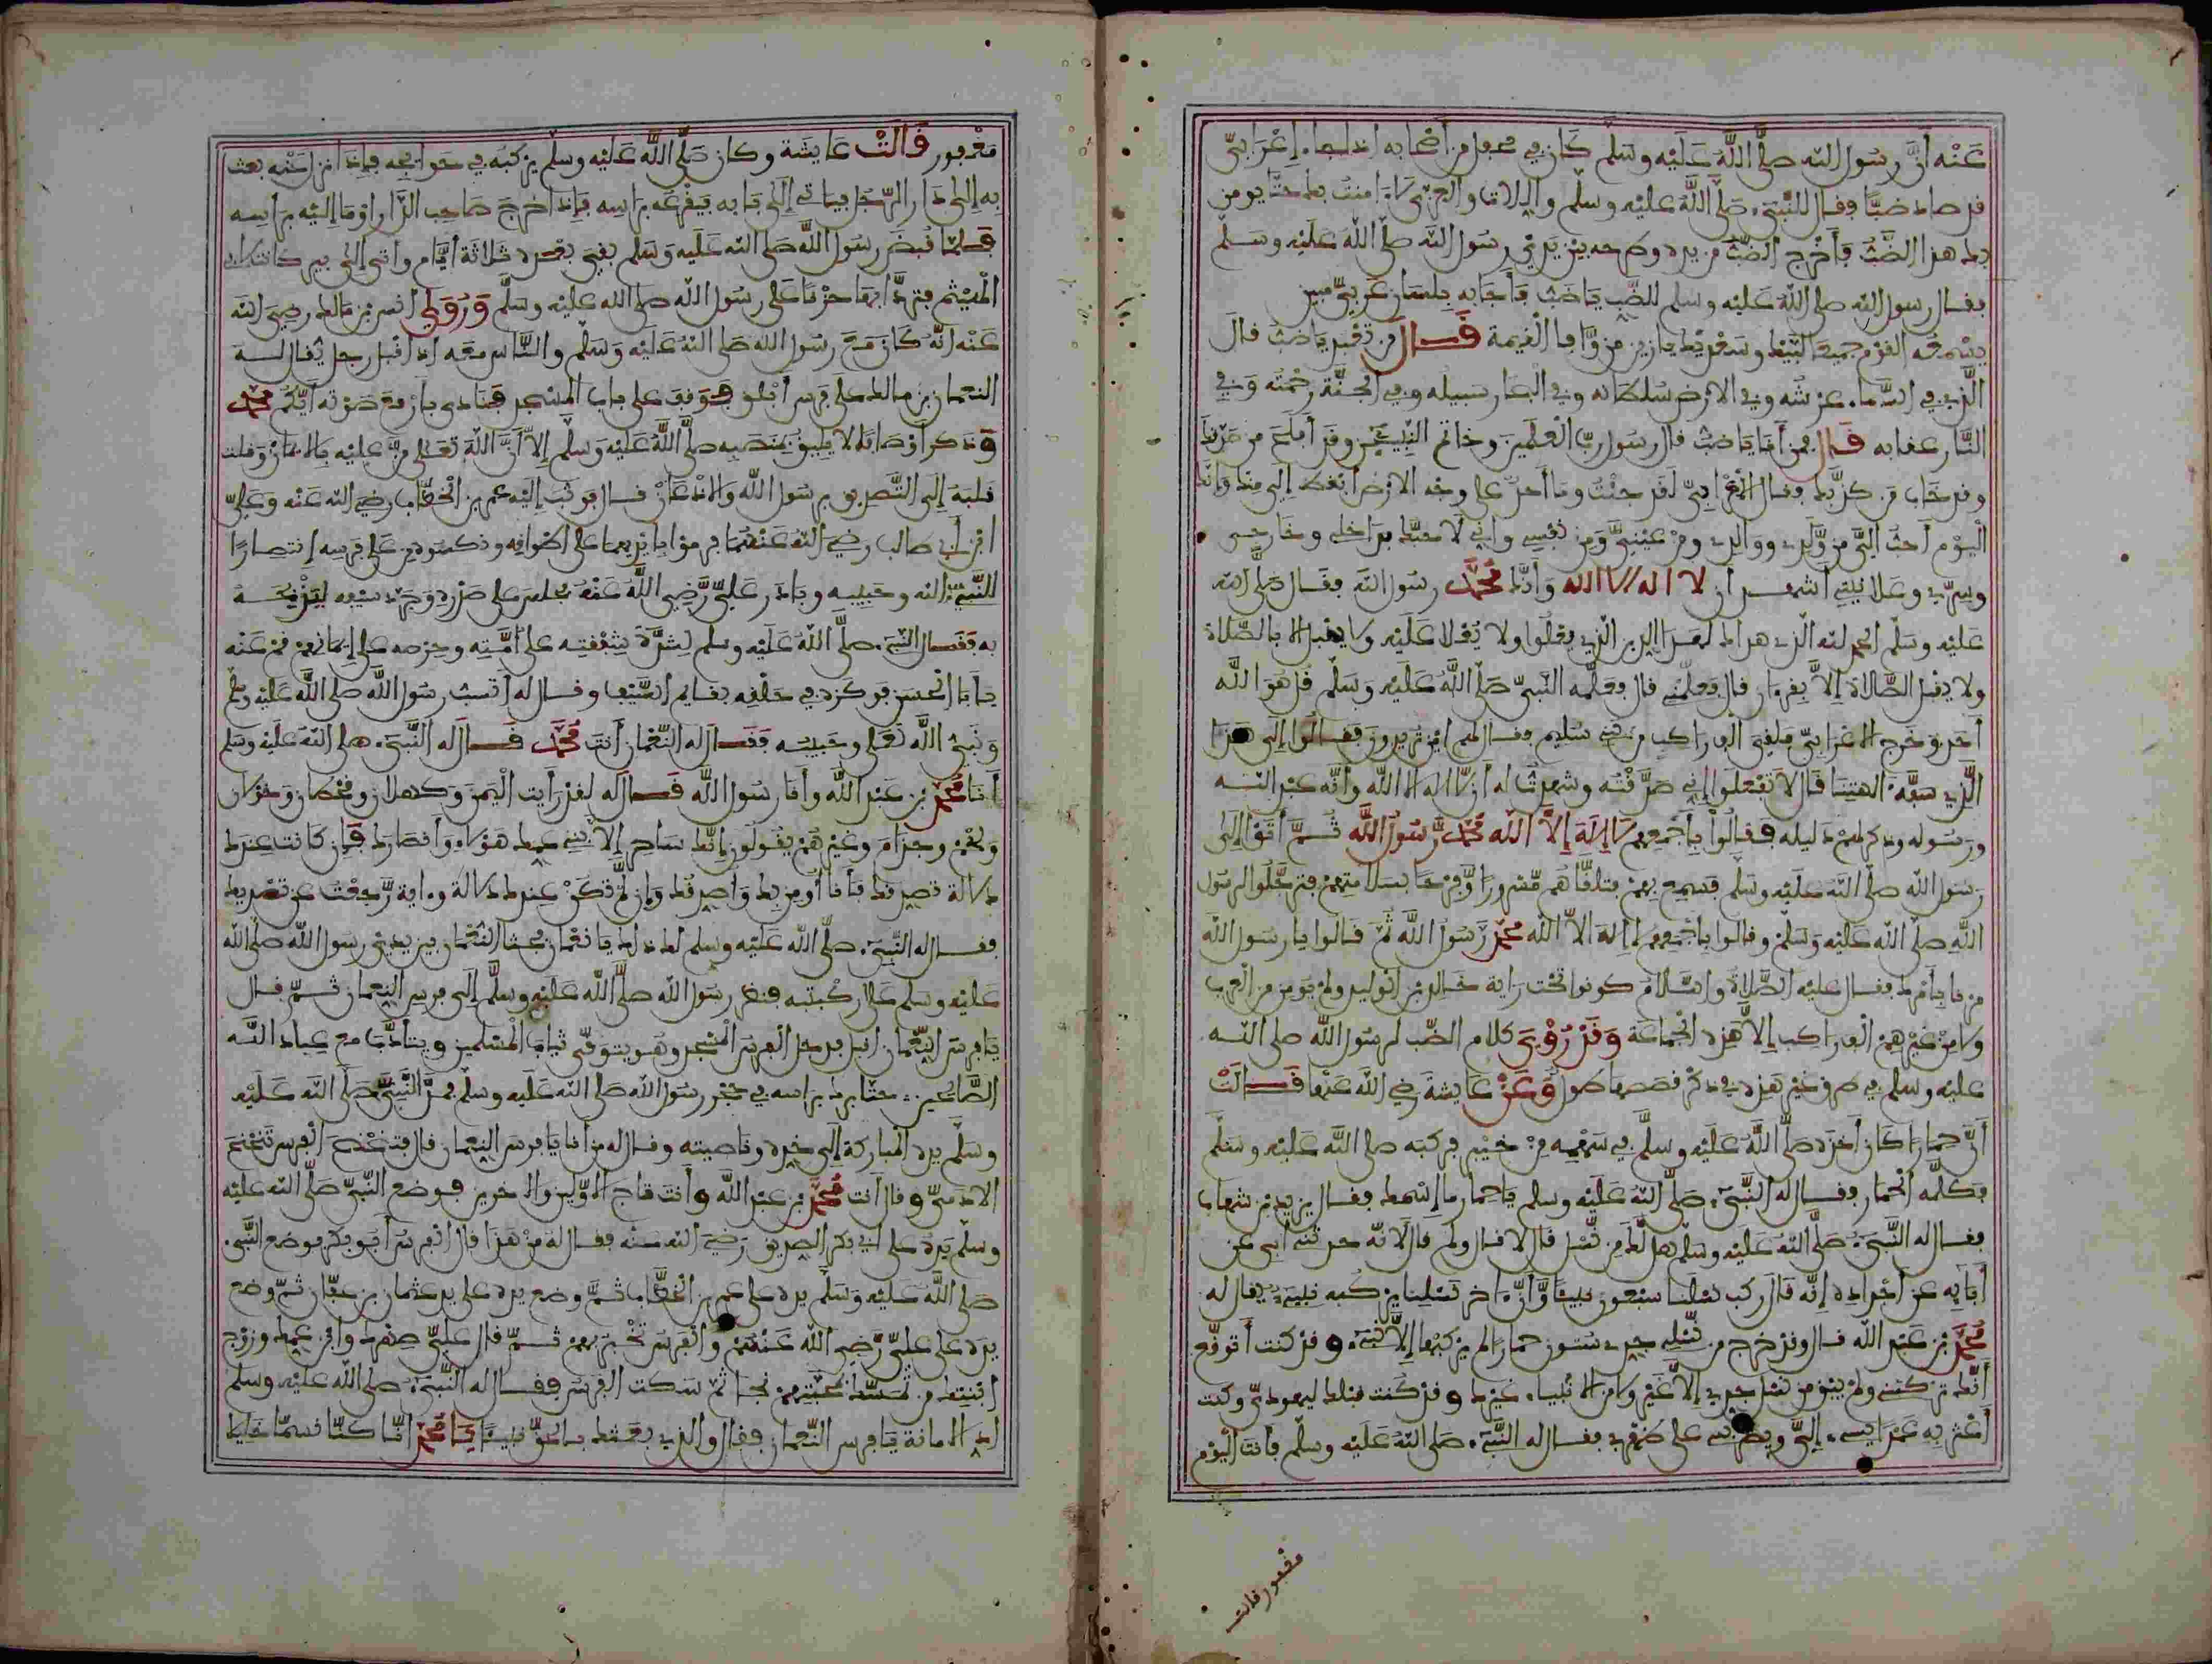 عنه أن رسول الله صلى الله عليه وسلم كان في محفل من أصحابه إذ جاء إعرابي
قد صاد ضبا فقال للنبيء صلى الله عليه وسلم واللات والعزى لا ءامنت بك حتا يومن
بك هذا الضب فأخرج الضب من يده وطرحه بين يدي رسول الله صلى الله عليه وسلم
فقال رسول الله صلى الله عليه وسلم للضب يا ضب فأجابه بلسان عربي مبين
يسمعه القوم جميعا لبيك وسعديك يا زين من وافا القيمة فقال من تعبد يا ضب قال
الذي في السماء عرشه وفي الارض سلطانه وفي البحار سبيله وفي الجنة رحمته وفي
النار عقابه فقال فمن أنا يا ضب قال رسول رب العلمين وخاتم النبيين وقد أفلح من صدقك
وقد خاب من كذبك فقال الأعرابي لقد جئت وما أحد على وجه الارض أبغض إلي منك وانك
اليوم أحب إلي من ولدي ووالدي ومن عيني ومن نفسي واني لا محبك بداخلي وخارجي
وسري وعلانيتي أشهد أن لا اله الا الله وأنك محمد رسول الله فقال صلى الله
عليه وسلم الحمد لله الذي هداك لهذا الدين الذي يعلوا ولا يعلا عليه ولا يقبل الا بالصلاة
ولا يقبل الصلاة إلا بقرءان قال فعلمني قال فعلمه النبي صلى الله عليه وسلم قل هو الله
أحد وخرج الاعرابي فلقي ألف راكب من بني سليم فقال لهم اين تريدون فقالوا إلى هذا
الذي سفه ءالهتنا قال لا تفعلوا إني صدقته وشهدت له أن لا اله الا الله وأنه عبد الله
ورسوله وذكر لهم دليله فقالوا بأجمعهم لا إله إلا الله محمد رسول الله ثم أتوا إلى
رسول الله صلى الله عليه وسلم فسمع بهم فتلقاهم مسرورا وفرحا بسلامتهم فترجلوا لرسول
الله صلى الله عليه وسلم وقالوا بأجمعهم لا إله الا الله محمد رسول الله ثم قالوا يا رسول الله
مرنا بأمرك فقال عليه الصلاة والسلام كونوا تحت راية خالد بن الوليد ولم يومن من العرب
ولا من غيرهم ألف راكب إلا هذه الجماعة وقد روي كلام الضب لرسول الله صلى الله
عليه وسلم في طرق غير هذه في ذكر قصصها طول وعن عايشة رضي الله عنها قالت
أن حمارا كان أخذه صلى الله عليه وسلم في سهمه من خيبر فركبه صلى الله عليه وسلم
فكلمه الحمار فقال له النبيء صلى الله عليه وسلم يا حمار ما اسمك فقال يزيد بن شهاب
فقال له النبيء صلى الله عليه وسلم هل لك من نسل قال لا قال ولم قال لانه حدثني أبي عن
أبايه عن أجداده إنه قال ركب نسلنا سبعون نبيئا وأن ءاخر نسلنا يركبه نبيء يقال له
محمد بن عبد الله قال وقد خرج من نسل جدي ستون حمارا لم يركبها إلا نبيء وقد كنت أتوقع
أنك تركبني ولم يبق من نسل جدي إلا غيري ولا من الانبياء غيرك وقد كنت قبلك ليهودي وكنت
أعثر به عمدا يسيء إلي ويضربني على ظهري فقال له النبيء صلى الله عليه وسلم فأنت اليوم
مغفور قالت
مغفور قالت عايشة وكان صلى الله عليه وسلم يركبه في حوايجه فإذا نزل عنه بعث
به إلى دار الرجل فياتي إلى بابه فيقرعه براسه فإذا خرج صاحب الدار اوما إليه براسه
فلما قبض رسول الله صلى الله عليه وسلم بقي بعده ثلاثة أيام واتى إلى بير كانت لابي
الهيثم فتردا فيها حزنا على رسول الله صلى الله عليه وسلم وروي انس بن مالك رضي الله
عنه انه كان مع رسول الله صلى الله عليه وسلم والناس معه إذ اقبل رجل يقال له
النعمان بن مالك على فرس أبلق فوقف على باب المسجد فنادى بأرفع صوته أيكم محمد
وذكر أوصافا لا يليق بمنصبه صلى الله عليه وسلم إلا أن الله تعلى من عليه بالايمان وفلت
قلبه إلى التصديق برسول الله والاذعان قال فوثب إليه عمر بن الخطاب رضي الله عنه وعلي
ابن أبي طالب رضي الله عنهما
للنبيء الله وحبيبه وبادر علي رضي الله عنه فجلس على صدره وجرد سيفه ليذبحه
به فقال النبيء صلى الله عليه وسلم لشدة شفقته على أمته وحرصه على إيمانهم قم عنه
يا أبا الحسن فوكزه في حلقه بقايم السيف وقال له أتسب رسول الله صلى الله عليه وسلم
ونبيء الله تعلى وحبيبه فقال له النعمان أنت محمد فقال له النبيء صلى الله عليه وسلم
أنا محمد بن عبد الله وأنا رسول الله فقال له لقد رأيت اليمن وكهلان وقحطان وخولان
ولخم وجذام وغيرهم يقولون إنك ساحر إلا بني عمك هؤلاء وأنصارك فإن كانت عندك
دلالة تصدقك فأنا أومن بك واصدقك وإن لم تكن عندك دلالة وءاية رجعت عن تصديقك
فقال له النبيء صلى الله عليه وسلم لك ذلك يا نعمان فجثا النعمان بين يدي رسول الله صلى الله
عليه وسلم على ركبتيه فنظر رسول الله صلى الله عليه وسلم إلى فرس النعمان ثم قال
يا فرس النعمان اقبل فدخل الفرس المسجد وهو يتوقى ثياب المسلمين ويتأدب مع عباد الله
الصالحين حتا برك براسه في حجر رسول الله صلى الله عليه وسلم فمر النبيء صلى الله عليه
وسلم يده المباركة إلى خده وناصيته وقال له من أنا يا فرس النعمان قال فتنحنح الفرس تنحنح
الادمي وقال أنت محمد بن عبد الله وأنت تاج الاولين والاخرين فوضع النبي صلى الله عليه
وسلم يده على أبي بكر الصديق رضي الله عنه فقال له من هذا قال الفرس أبو بكر فوضع النبيء
صلى الله عليه وسلم يده على عمر بن الخطاب ثم وضع يده على يد عثمان بن عفان ثم وضع
يده على علي رضي الله عنهم والفرس تخبر بهم ثم قال علي صهرك وابن عمك وزوج
ابنتك من تمسك بمحبتهم نجا ثم سكت الفرس فقال له النبيء صلى الله عليه وسلم
أد الامانة يا فرس النعمان فقال والذي بعثك بالحق نبيئا يا محمد انا كنا قسما غايبا